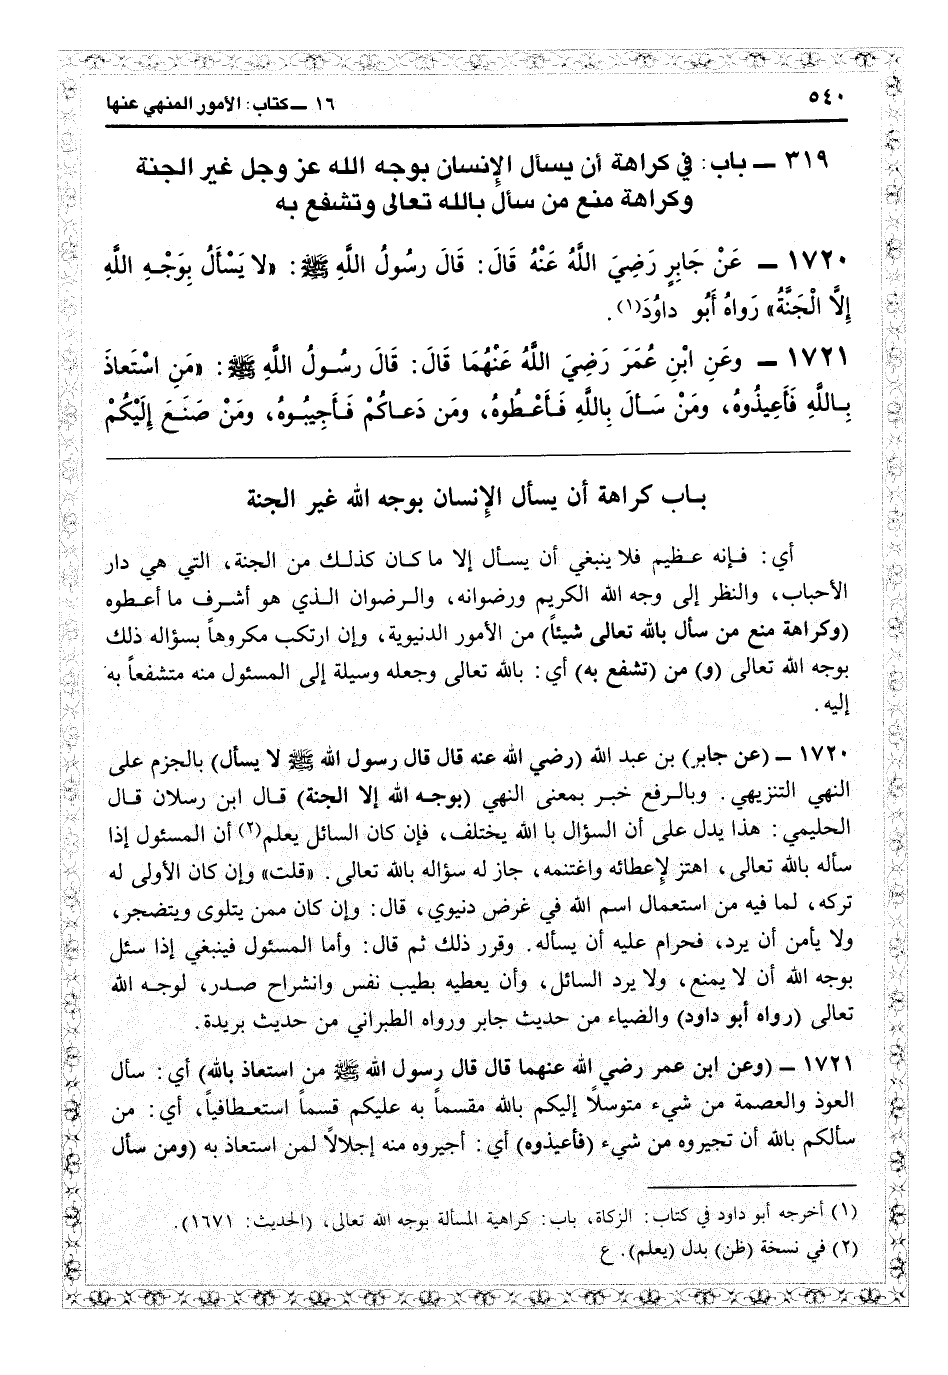 ٥٤٠
١٦ ــ كتاب: الأمور المنهي عنها
٣١٩ ــ باب: في كراهة أن يسأل الإنسان بوجه الله عز وجل غير الجنة
وكراهة منع من سأل بالله تعالى وتشفع به
١٧٢٠ ــ عَنْ جَابِرٍ رَضِيَ اللَّهُ عَنْهُ قَالَ: قَالَ رَسُولُ اللَّهِ ﷺ: «لا يَسْأَلُ بِوَجْهِ اللَّهِ
إِلَّا الْجَنَّةُ» رَوَاهُ أَبُو داوُدَ(١).
١٧٢١ ــ وعَنِ ابْنِ عُمَرَ رَضِيَ اللَّهُ عَنْهُمَا قَالَ: قَالَ رسُولُ اللَّهِ ﷺ: «مَنِ اسْتَعاذَ
بِاللَّهِ فَأَعِيذُوهُ، ومَنْ سَألَ بِاللَّهِ فَأَعْطُوهُ، ومَن دَعاكُمْ فَأَجِيبُوهُ، ومَنْ صَنَعَ إِلَيْكُمْ
باب كراهة أن يسأل الإنسان بوجه الله غير الجنة
أي: فإنه عظيم فلا ينبغي أن يسأل إلا ما كان كذلك من الجنة، التي هي دار
الأحباب، والنظر إلى وجه الله الكريم ورضوانه، والرضوان الذي هو أشرف ما أعطوه
(وكراهة منع من سأل بالله تعالى شيئاً) من الأمور الدنيوية، وإن ارتكب مكروهاً بسؤاله ذلك
بوجه الله تعالى (و) من (تشفع به) أي: بالله تعالى وجعله وسيلة إلى المسئول منه متشفعاً به
إليه.
١٧٢٠ ــ (عن جابر) بن عبد الله (رضي الله عنه قال قال رسول الله ﷺ لا يسأل) بالجزم على
النهي التنزيهي. وبالرفع خبر بمعنى النهي (بوجه الله إلا الجنة) قال ابن رسلان قال
الحليمي: هذا يدل على أن السؤال با الله يختلف، فإن كان السائل يعلم(٢) أن المسئول إذا
سأله بالله تعالى، اهتز لإعطائه واغتنمه، جاز له سؤاله بالله تعالى. «قلت» وإن كان الأولى له
تركه، لما فيه من استعمال اسم الله في غرض دنيوي، قال: وإن كان ممن يتلوى ويتضجر،
ولا يأمن أن يرد، فحرام عليه أن يسأله. وقرر ذلك ثم قال: وأما المسئول فينبغي إذا سئل
بوجه الله أن لا يمنع، ولا يرد السائل، وأن يعطيه بطيب نفس وانشراح صدر، لوجه الله
تعالى (رواه أبو داود) والضياء من حديث جابر ورواه الطبراني من حديث بريدة.
١٧٢١ ــ (وعن ابن عمر رضي الله عنهما قال قال رسول الله ﷺ من استعاذ بالله) أي: سأل
العوذ والعصمة من شيء متوسلًا إليكم بالله مقسماً به عليكم قسماً استعطافياً، أي: من
سألكم بالله أن تجيروه من شيء (فأعيذوه) أي: أجيروه منه إجلالًا لمن استعاذ به (ومن سأل
(١) أخرجه أبو داود في كتاب: الزكاة، باب: كراهية المسألة بوجه الله تعالى، (الحديث: ١٦٧١).
(٢) في نسخة (ظن) بدل (يعلم). ع